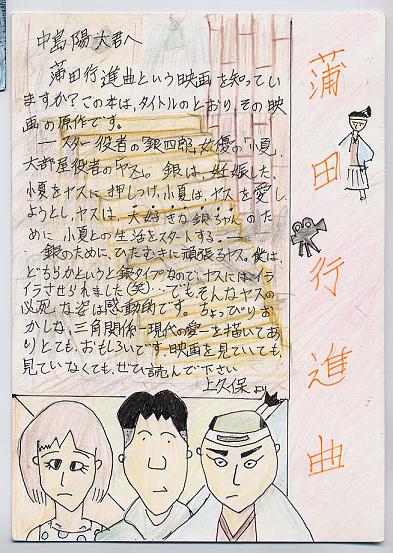 中島陽大君へ
蒲田行進曲という映画を知ってい
ますか？この本は、タイトルのとおり、その映
画の原作です。
―スター役者の「銀四郎」、女優の「小夏」、
大部屋役者の「ヤス」。銀は、妊娠した、
小夏をヤスに押しつけ、小夏は、ヤスを愛し
ようとし、ヤスは、大好きな銀ちゃんのた
めに小夏との生活をスタートする。―
銀のために、ひたむきに頑張るヤス。僕は、
どちらかというと銀タイプなので、ヤスには、イラ
イラさせられました(笑)…でもそんなヤスの
必死な姿は感動的です。ちょっぴりお
かしな、三角関係―現代の愛―を描いてあ
りとても、おもしろいです。映画を見ていても、
見ていなくても、ぜひ読んで下さい
上久保より
蒲田行進曲